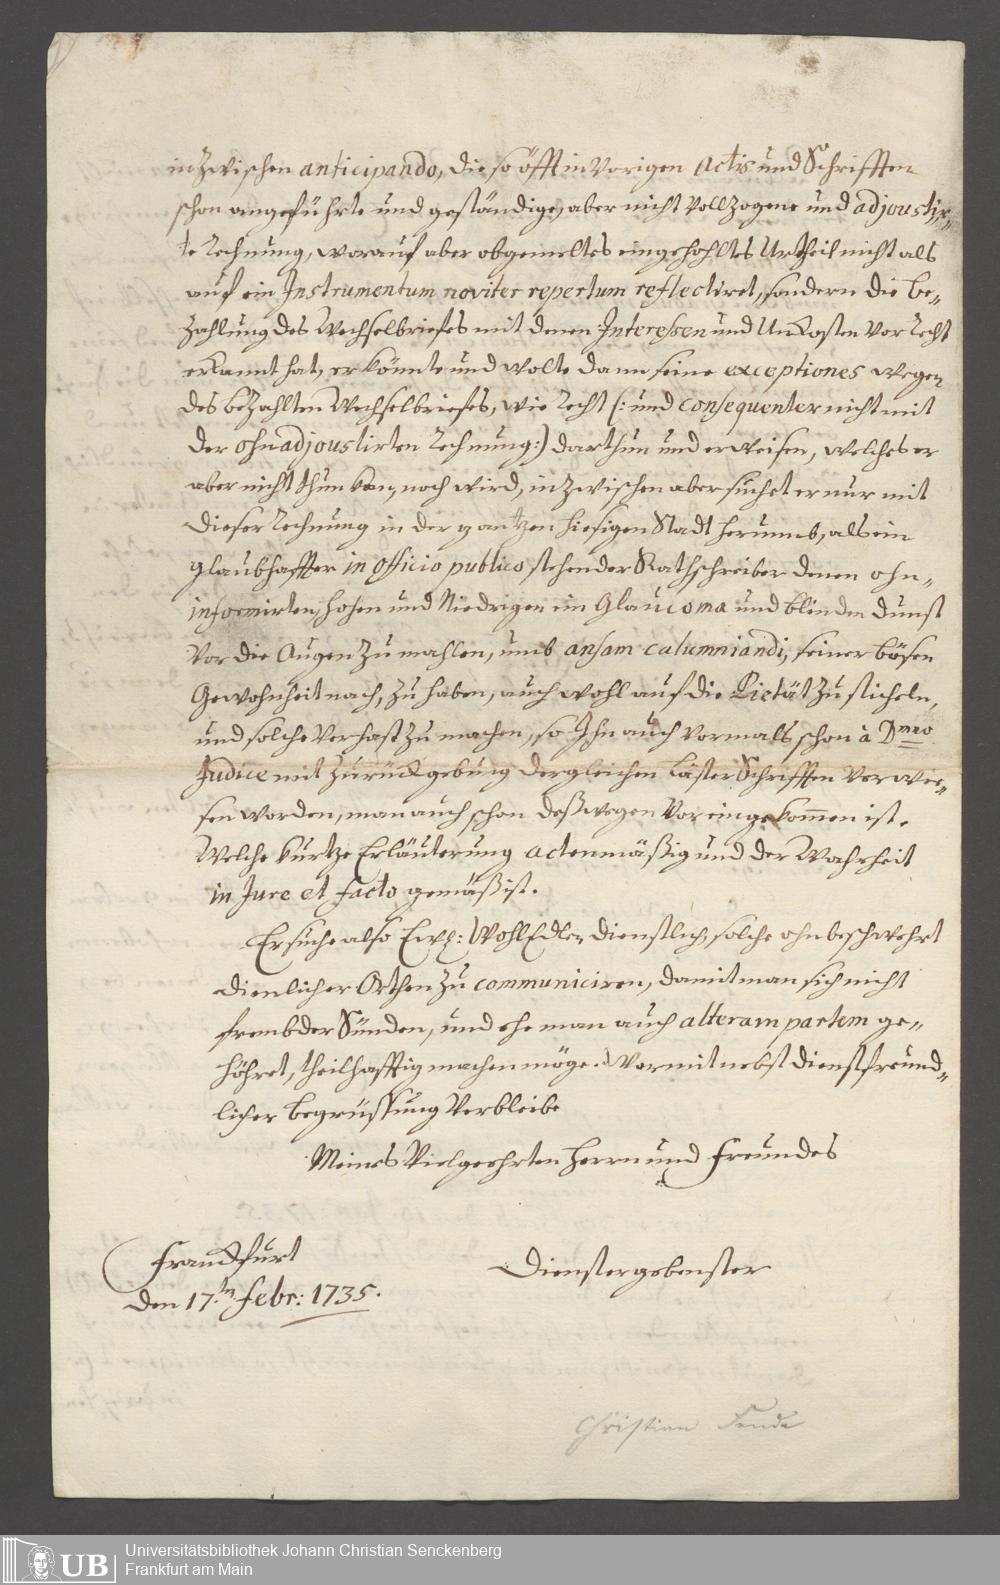 inzwischen anticipando, die so öfft in vorigen Actis und Schrifften
schon angeführte und geständige, aber nicht vollzogene und adjoustir„
te Rechnung, worauf aber obgemeltes eingehohltes Urtheil nicht als
auf ein Instrumentum noviter repertum reflectiret, sondern die be„
zahlung des Wechselbriefes mit denen Interessen und Unkosten vor recht
erkannt hat, er könnte und wolte dann seine exceptiones wegen
des bezahlten Wechselbriefes, wie recht (: und consequenter nicht mit
der ohnadjoustirten Rechnung:) darthun und erweisen, welches er
aber nicht thun kan, noch wird, inzwischen aber suchet er nur mit
dieser Rechnung in der gantzen hiesigen Stadt herumb, als ein
glaubhaffter in officio publico stehender Rathschreiber denen ohn„
informirten, hohen und Niedrigen ein Glaucoma und blinden dunst
vor die Augen zu mahlen, umb ansam calumniandi, seiner bösen
Gewohnheit nach, zu haben, auch wohl auf die Pietät zu sticheln,
und solche verhast zu machen, so Ihn auch vormals schon à Dnno
Judice mit zurückgebung dergleichen Läster Schrifften verwie„
sen worden, man auch schon deßwegen vor eingekommen ist.
Welche kurtze Erläuterung actenmäßig und der Wahrheit
in Jure et facto gemäß ist.
Ersuche also Ew: WohlEdlen dienstlich, solche ohnbeschwehrt
dienlicher Orthen zu communiciren, damit man sich nicht
frembder Sünden, und ehe man auch alteram partem ge„
höhret, theilhafftig machen möge. Wormit nebst dienstfreund„
licher begrüssung verbleibe
Meines Vielgeehrten Herrn und Freundes
Franckfurt
den 17.ten Febr: 1735.
Dienstergebenster
Christian Fende
UB
Universitätsbibliothek Johann Christian Senckenberg
Frankfurt am Main